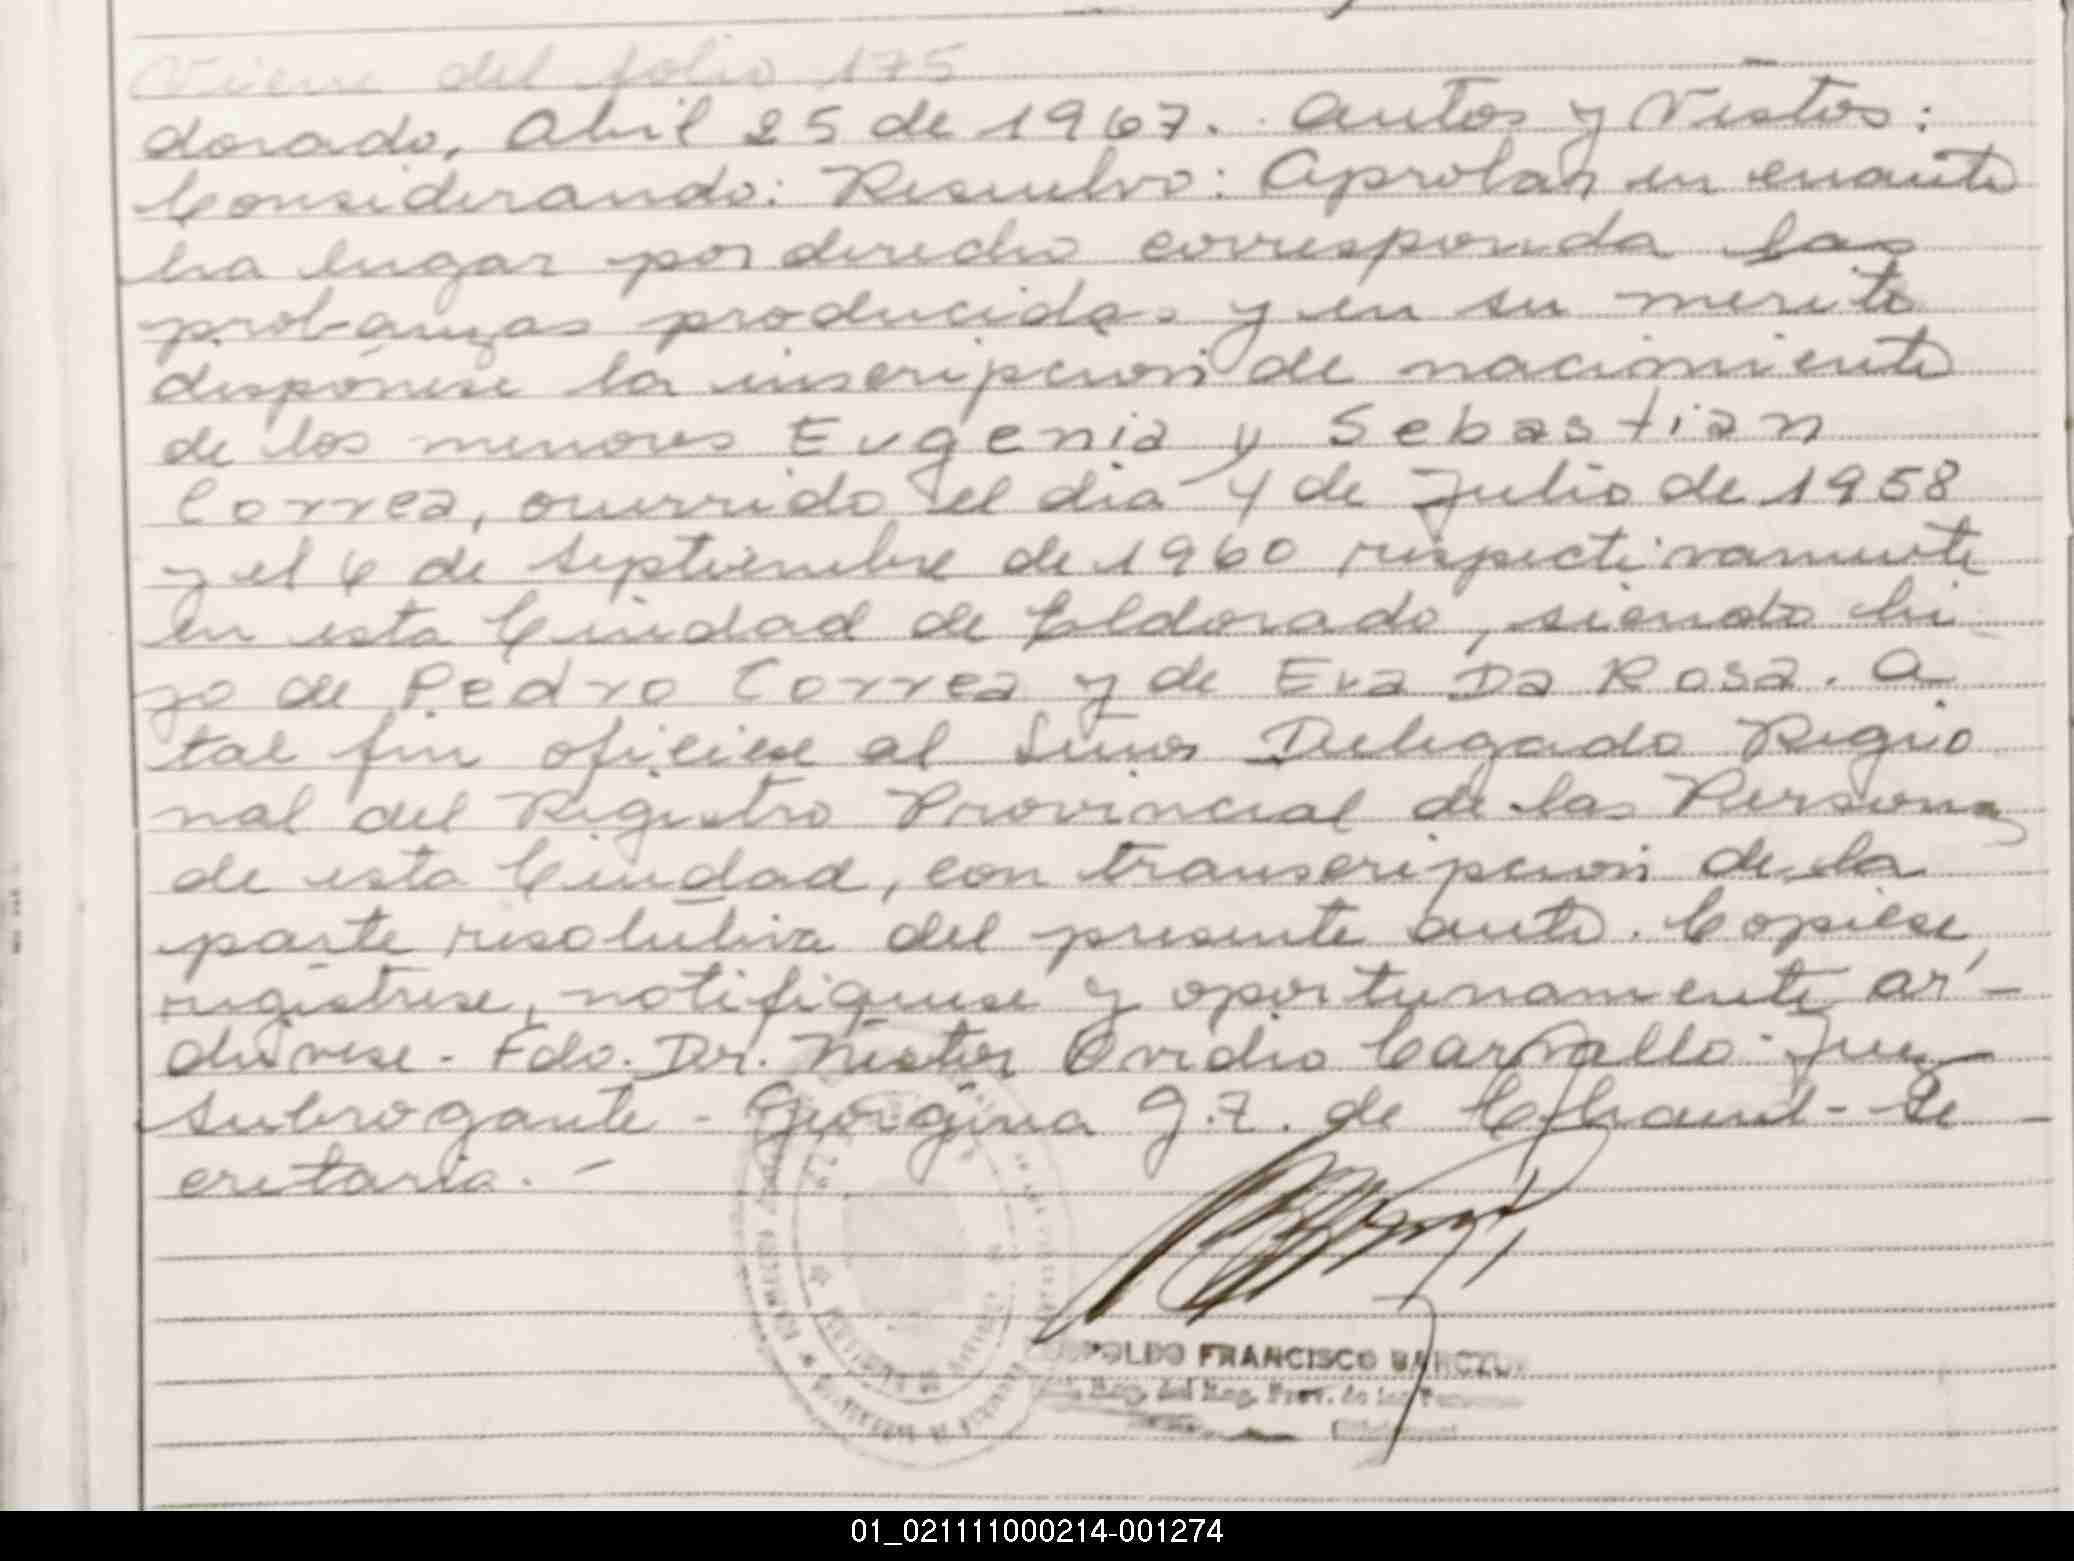 Viene del folio 175
dorado, Abril 25 de 1967. Autos y Vistos:
Considerando: Resuelvo: Aprobar en cuanto
ha lugar por derecho corresponda las
probanzas producidas y en su merito
disponese la inscripcion de nacimiento
de los menores Eugenia y Sebastian
Correa, ocurrido el dia 4 de Julio de 1958
y el 6 de Septiembre de 1960 respectivamente
en esta Ciudad de Eldorado, siendo hi
jo de Pedro Correa y de Eva Da Rosa. A
tal fin oficiese al Señor Delegado Regio
nal del Registro Provincial de las Personas
de esta Ciudad, con transcripcion de la
parte resolutiva del presente auto. Copiese
registrese, notifiquese y oportunamente ar-
chivese - Fdo. Dr. Nestor Ovidio Carvallo - Juez
Subrogante - Georgina J.Z. de Chami - Se
cretaria. -
FRANCISCO
Reg. del Reg. Prov. de las
01_021111000214-001274